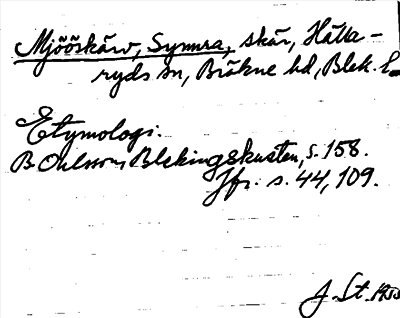 Mjööskärv, Symra, skär, Hälla-
ryds sn, Bräkne hd, Blek. l.
Etymologi.
B Ohlsson, Blekingskusten, s. 158.
Jfr. s. 44, 109.
J. St.